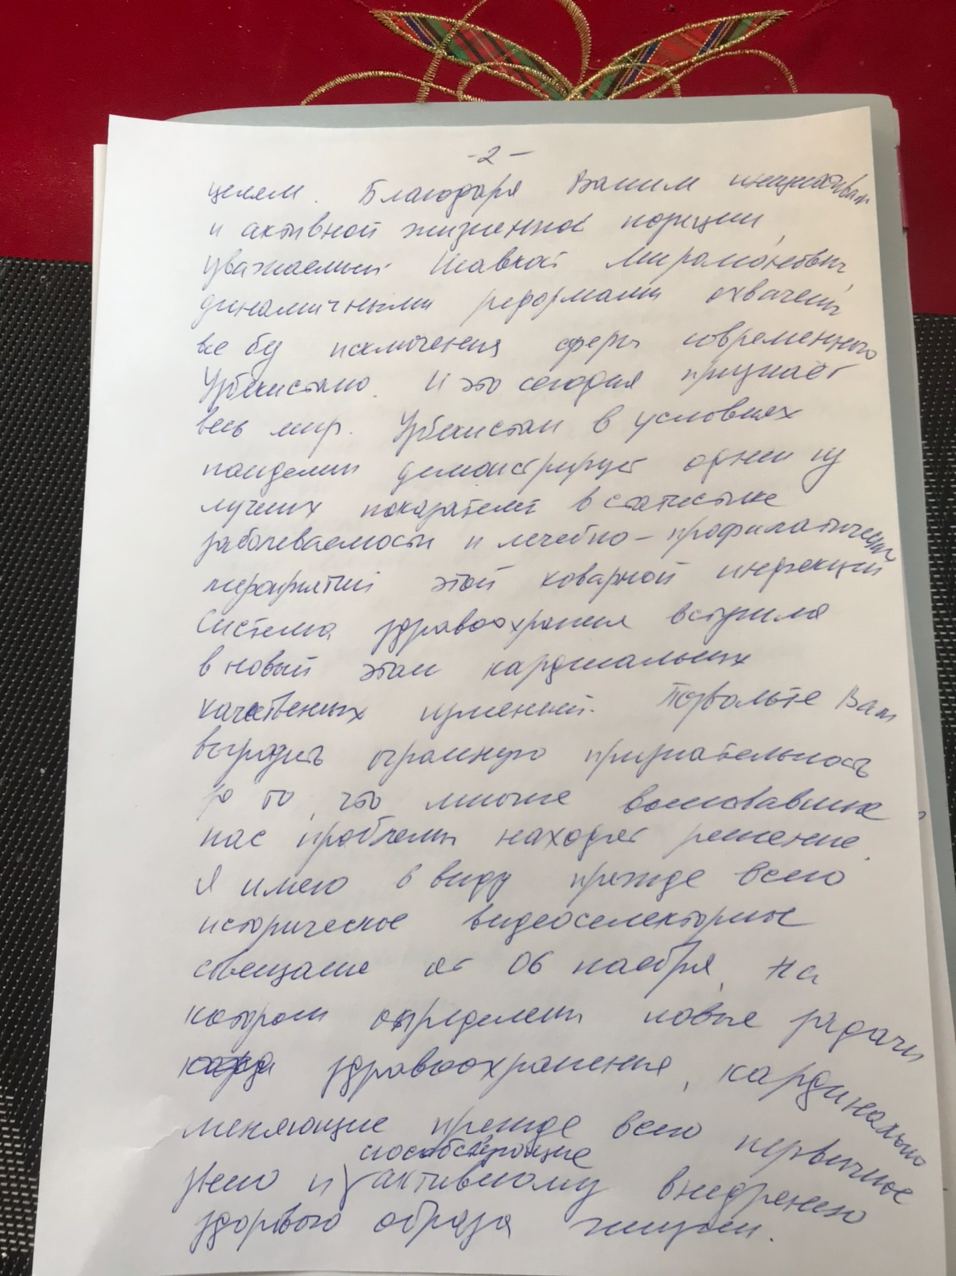 -2-
целям. Благодаря Вашим инициативам
и активной жизненной позиции,
уважаемый Шавкат Миромонович,
динамичными реформами охвачены
все без исключения сферы современного
Узбекистана. И это сегодня признаёт
весь мир. Узбекистан в условиях
пандемии демонстрирует одни из
лучших показателей в статистике
заболеваемости и лечебно-профилактических
мероприятий этой коварной инфекции
Система здравоохранения вступила
в новый этап кардинальных
качественных изменений. Позвольте Вам
выразить огромную признательность
за то, что многие волновавшие
нас проблемы находят решение.
Я имею в виду прежде всего
историческое видеоселекторное
совещание от 06 ноября, на
котором определены новые задачи
здравоохранения, кардинально
меняющие прежде всего первичное
способствующие
звено и активному внедрению
здорового образа жизни.